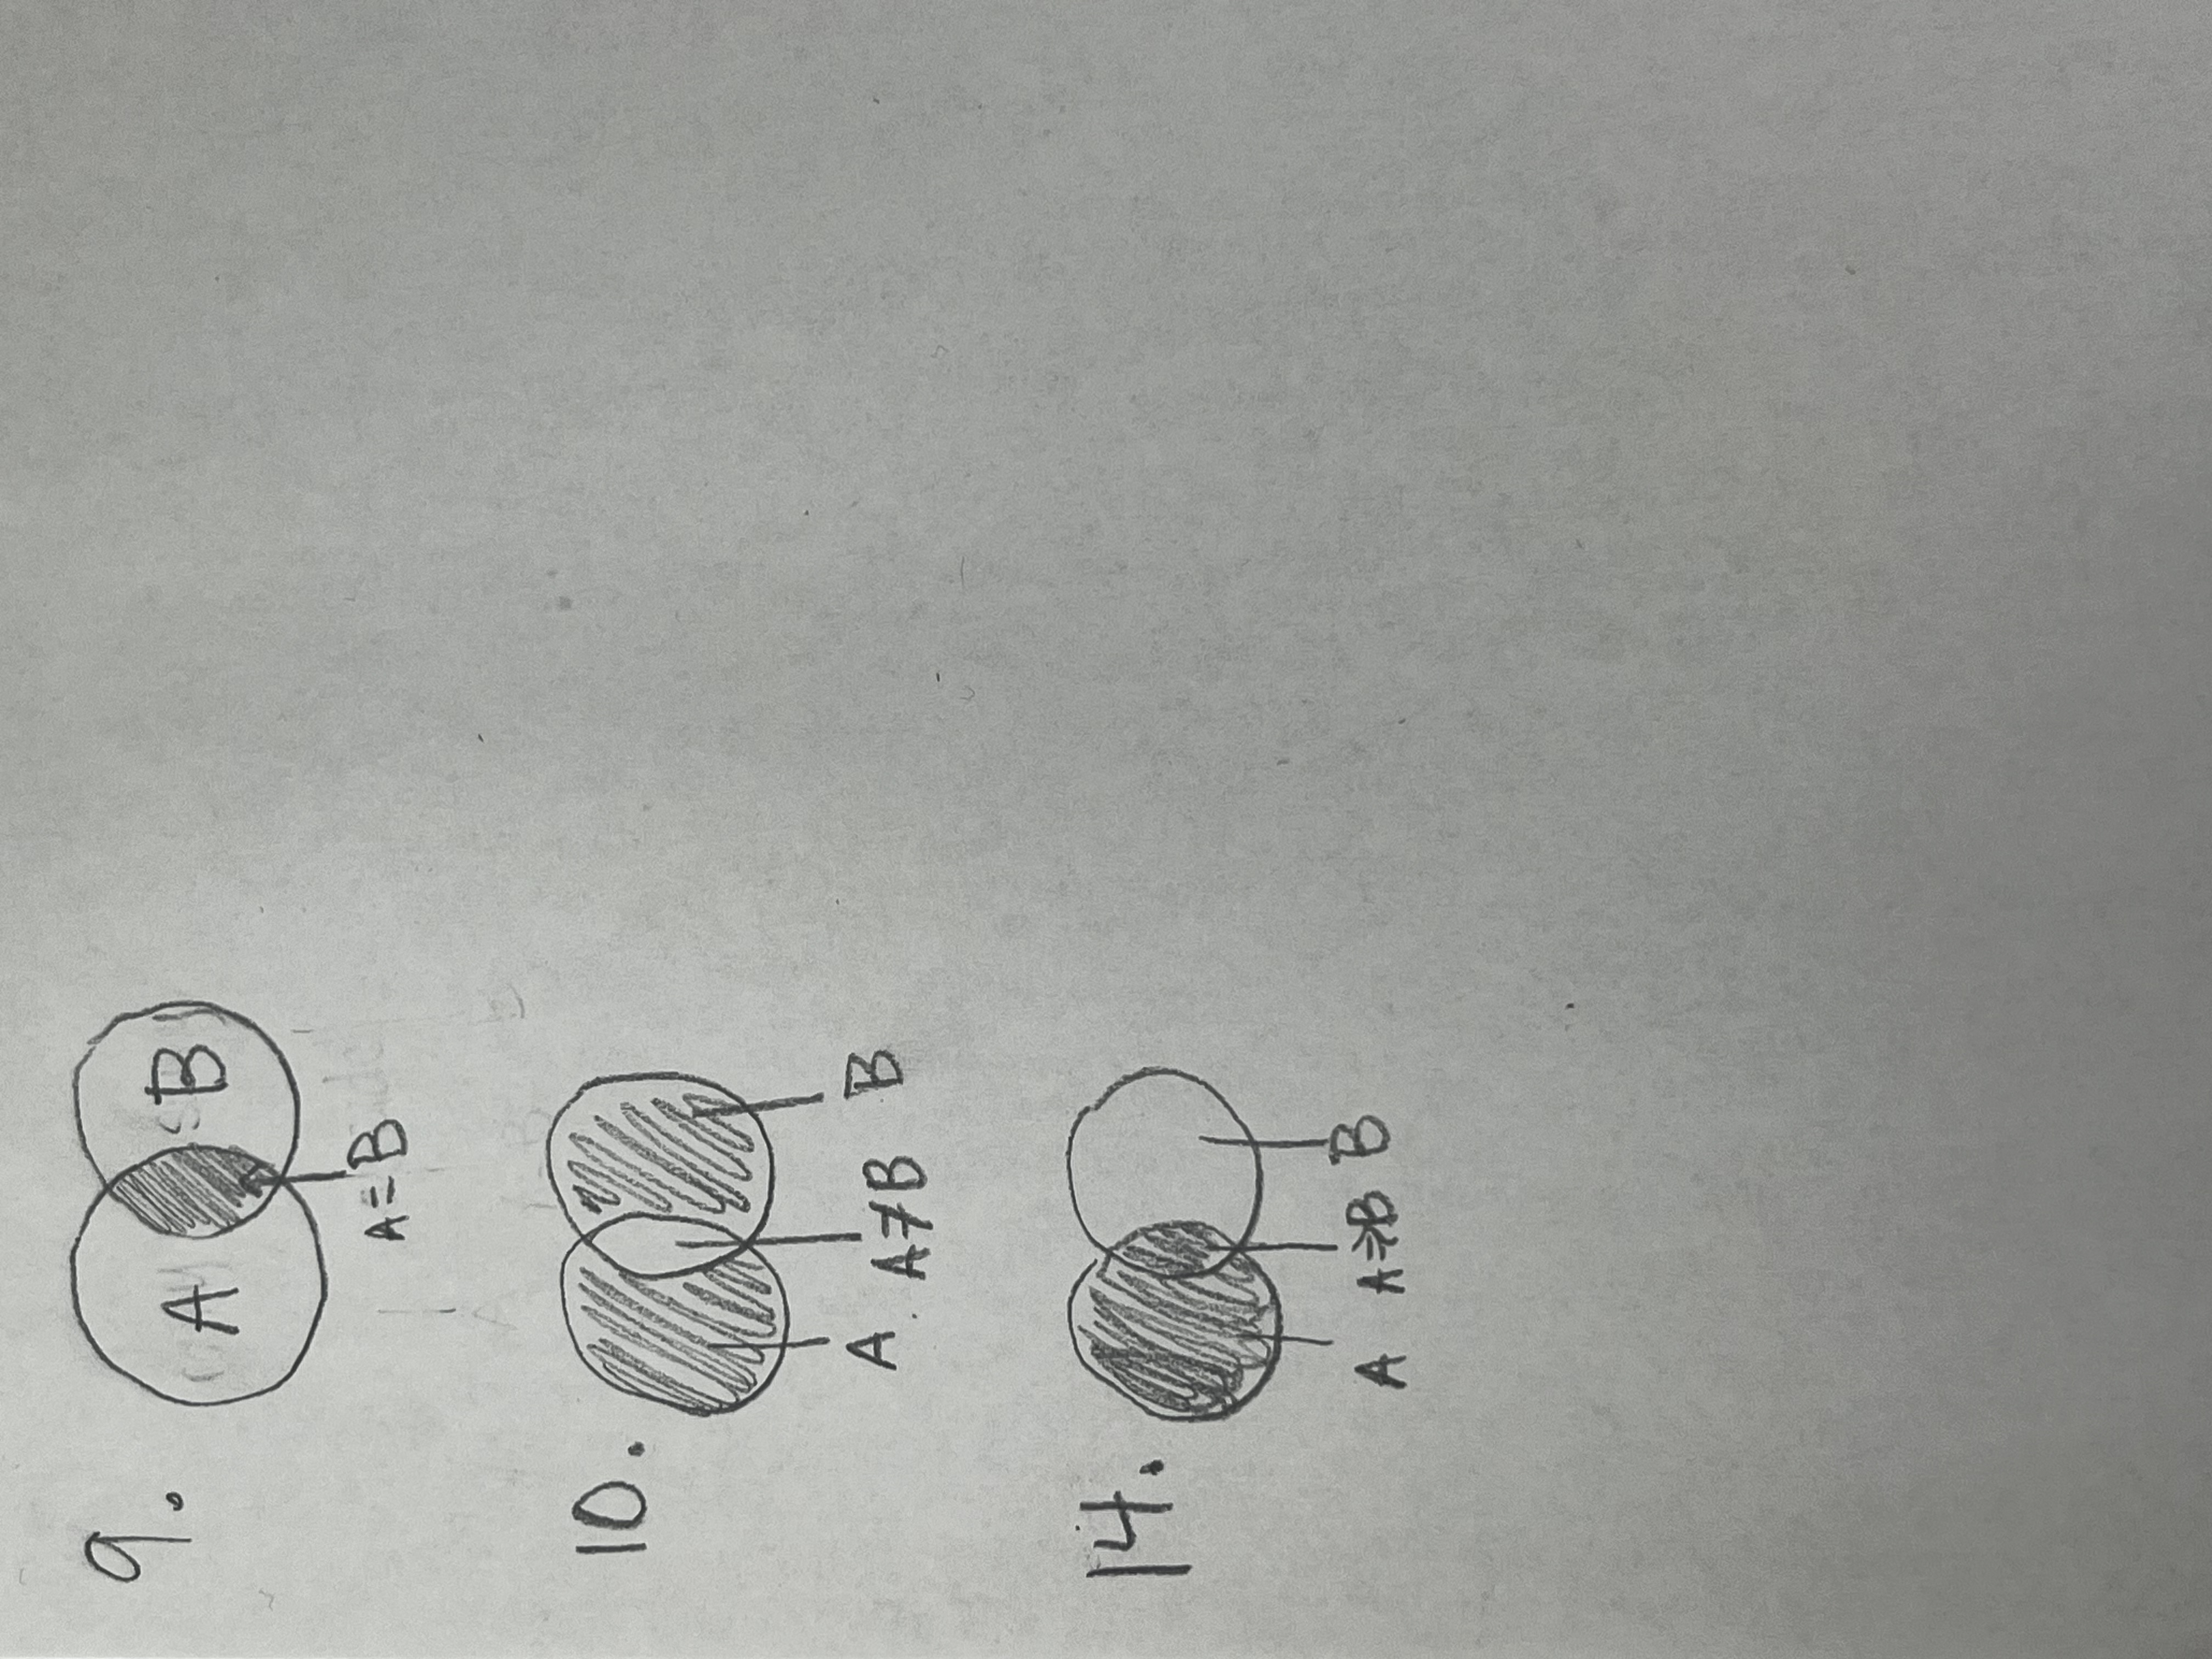 9.
A B
A=B
10.
A A≠B B
14.
A A⇒B B